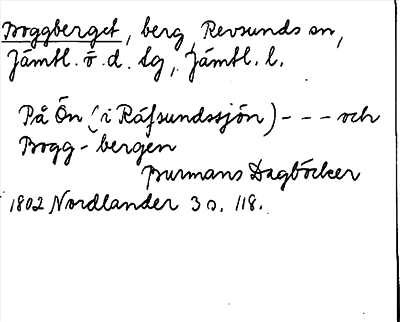 Boggberget, berg, Revsunds sn,
Jämtl. ö. d. tg, Jämtl. l.
På Ön (i Räfsundssjön) - - - och
Bogg-bergen
Burmans Dagböcker
1802 Nordlander 3 s. 118.